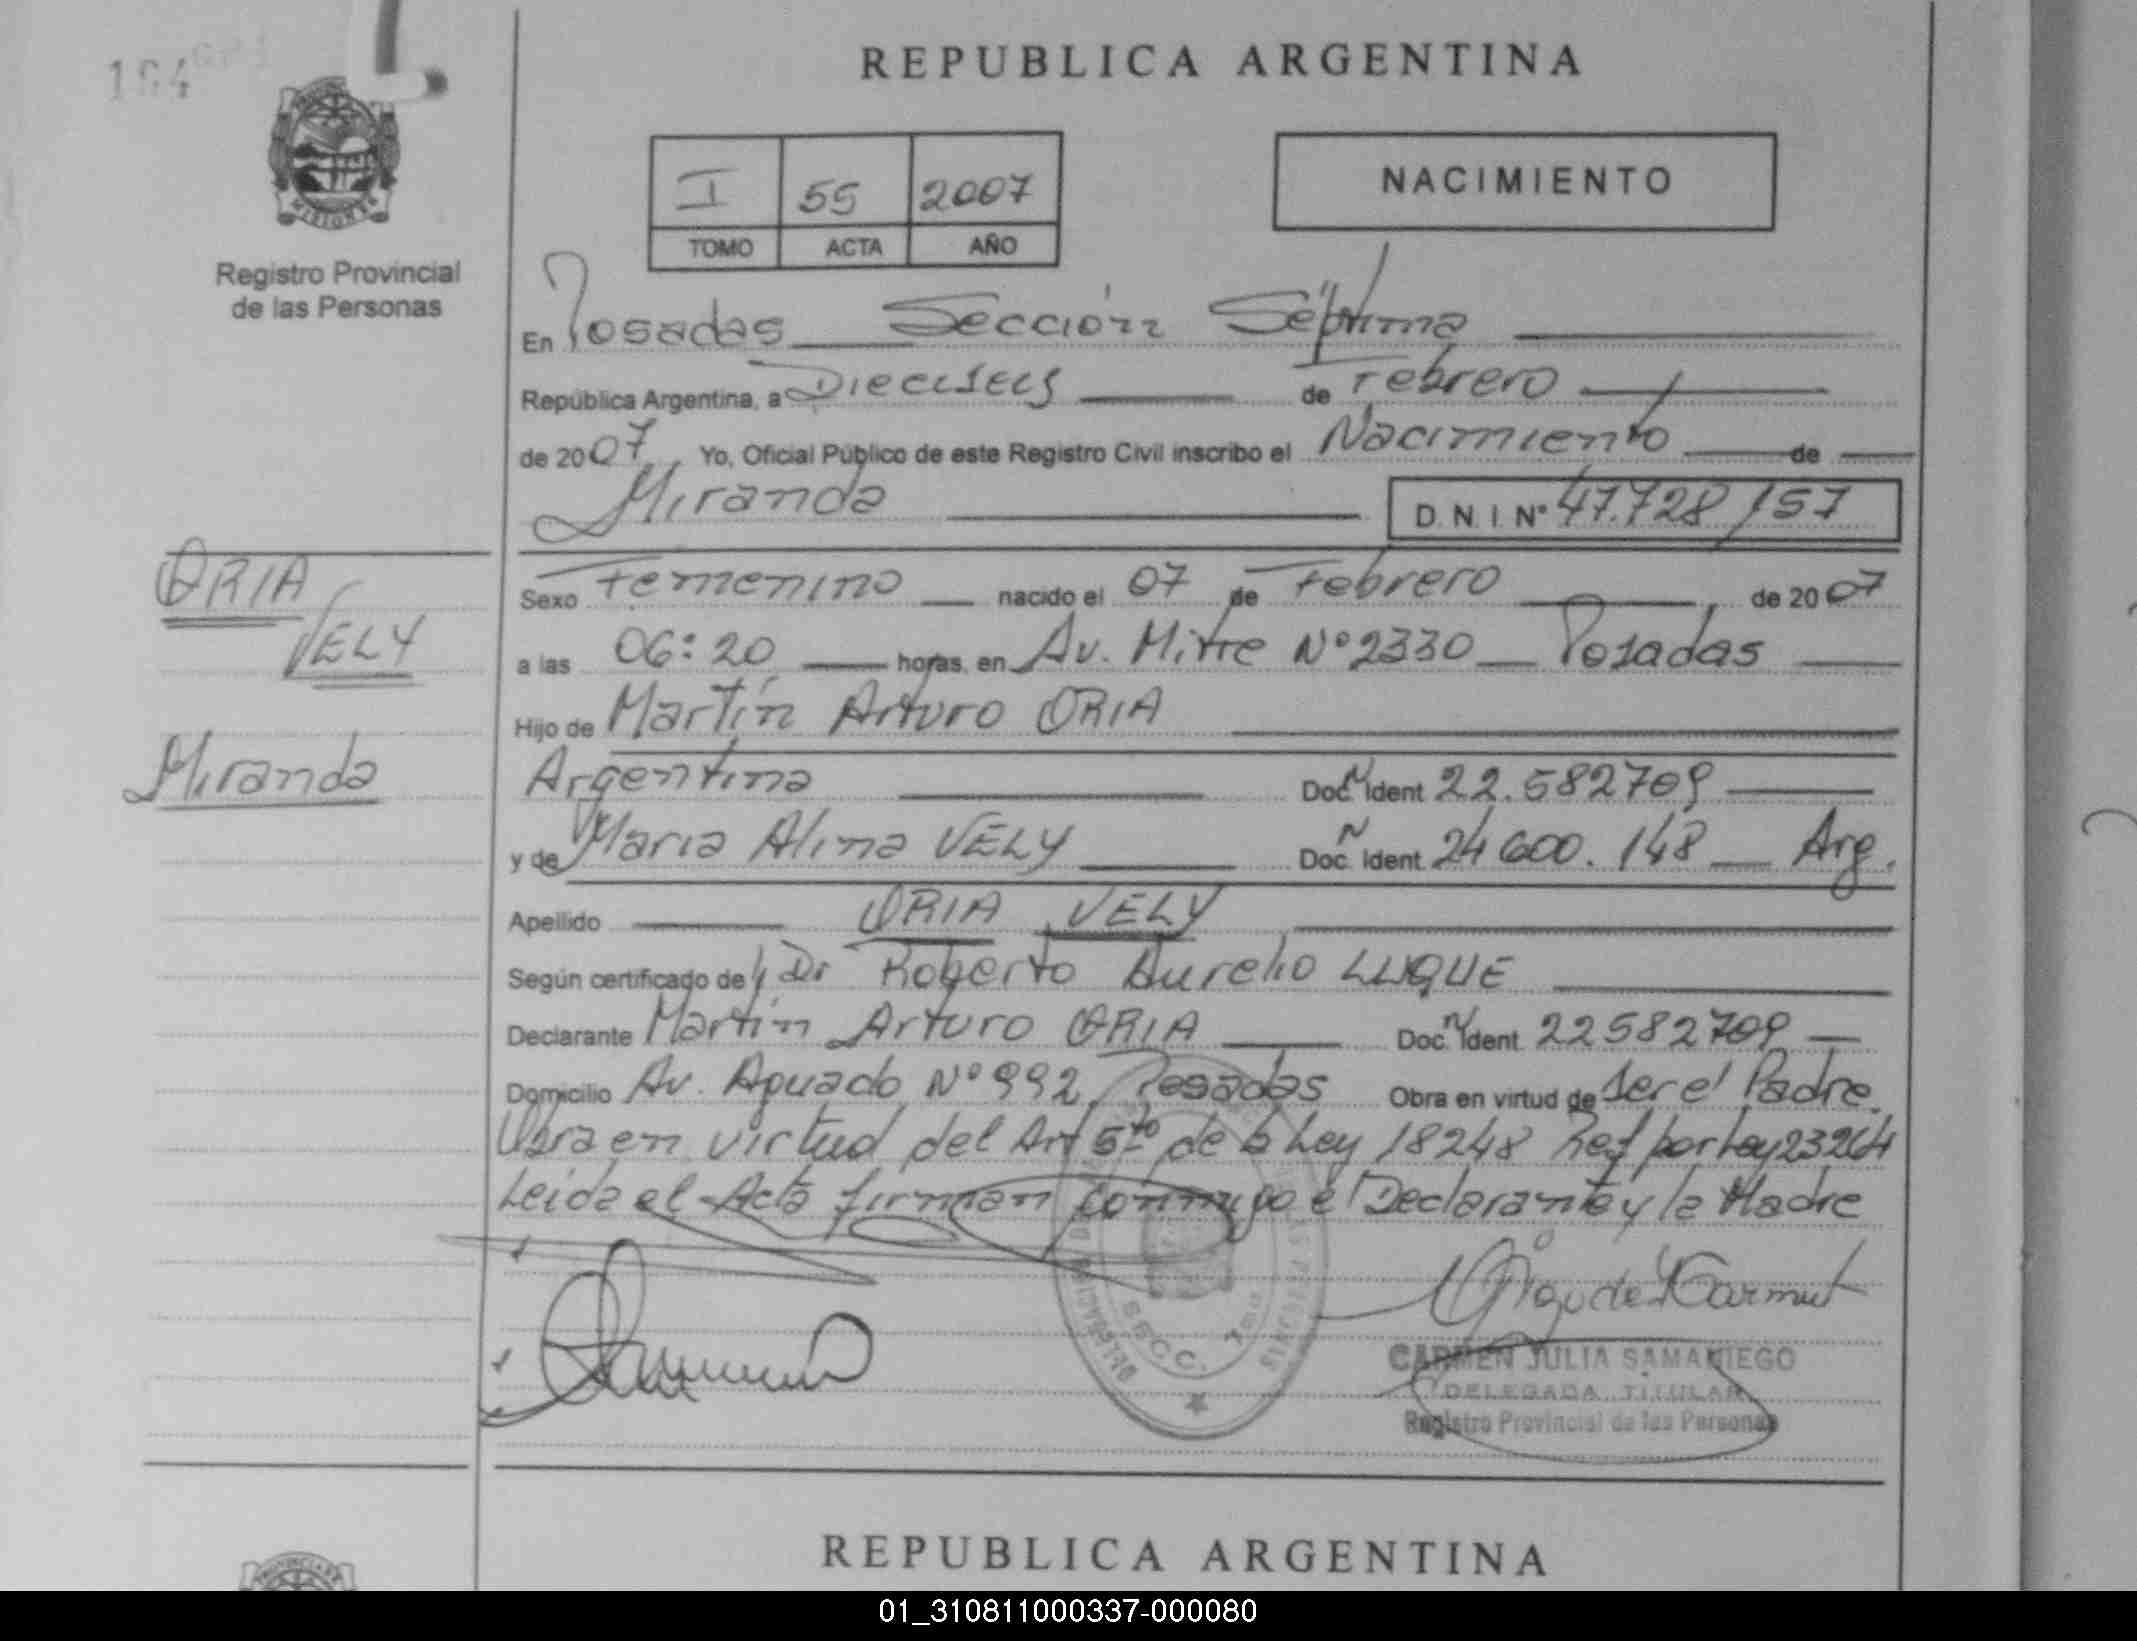 164
REPUBLICA ARGENTINA
MISIONES
Registro Provincial
de las Personas
I 55 2007
TOMO ACTA AÑO
NACIMIENTO
En Posadas Sección Séptima
República Argentina, a Dieciseis de Febrero
de 2007 Yo, Oficial Público de este Registro Civil inscribo el Nacimiento de
Miranda D.N.I. Nº 47.728.157
ORIA
VELY
Miranda
Sexo Femenino nacido el 07 de Febrero, de 2007
a las 06:20 horas, en Av. Mitre Nº 2330 Posadas
Hijo de Martín Arturo ORIA
Argentina Doc. N Ident 22.582709
y de Maria Alina VELY Doc. N Ident. 24600.148 Arg.
Apellido ORIA VELY
Según certificado de Dr Roberto Aurelio LUQUE
Declarante Martín Arturo ORIA Doc. N Ident. 22582709
Domicilio Av. Aguado Nº 992, Posadas Obra en virtud de ser el Padre.
Obra en virtud del Art 5to de la Ley 18248 Ref por Ley 23264
Leida el Acta firman conmigo el Declarante y la Madre
SECC. 7ma
CARMEN JULIA SAMANIEGO
DELEGADA TITULAR
Registro Provincial de las Personas
REPUBLICA ARGENTINA
01_310811000337-000080